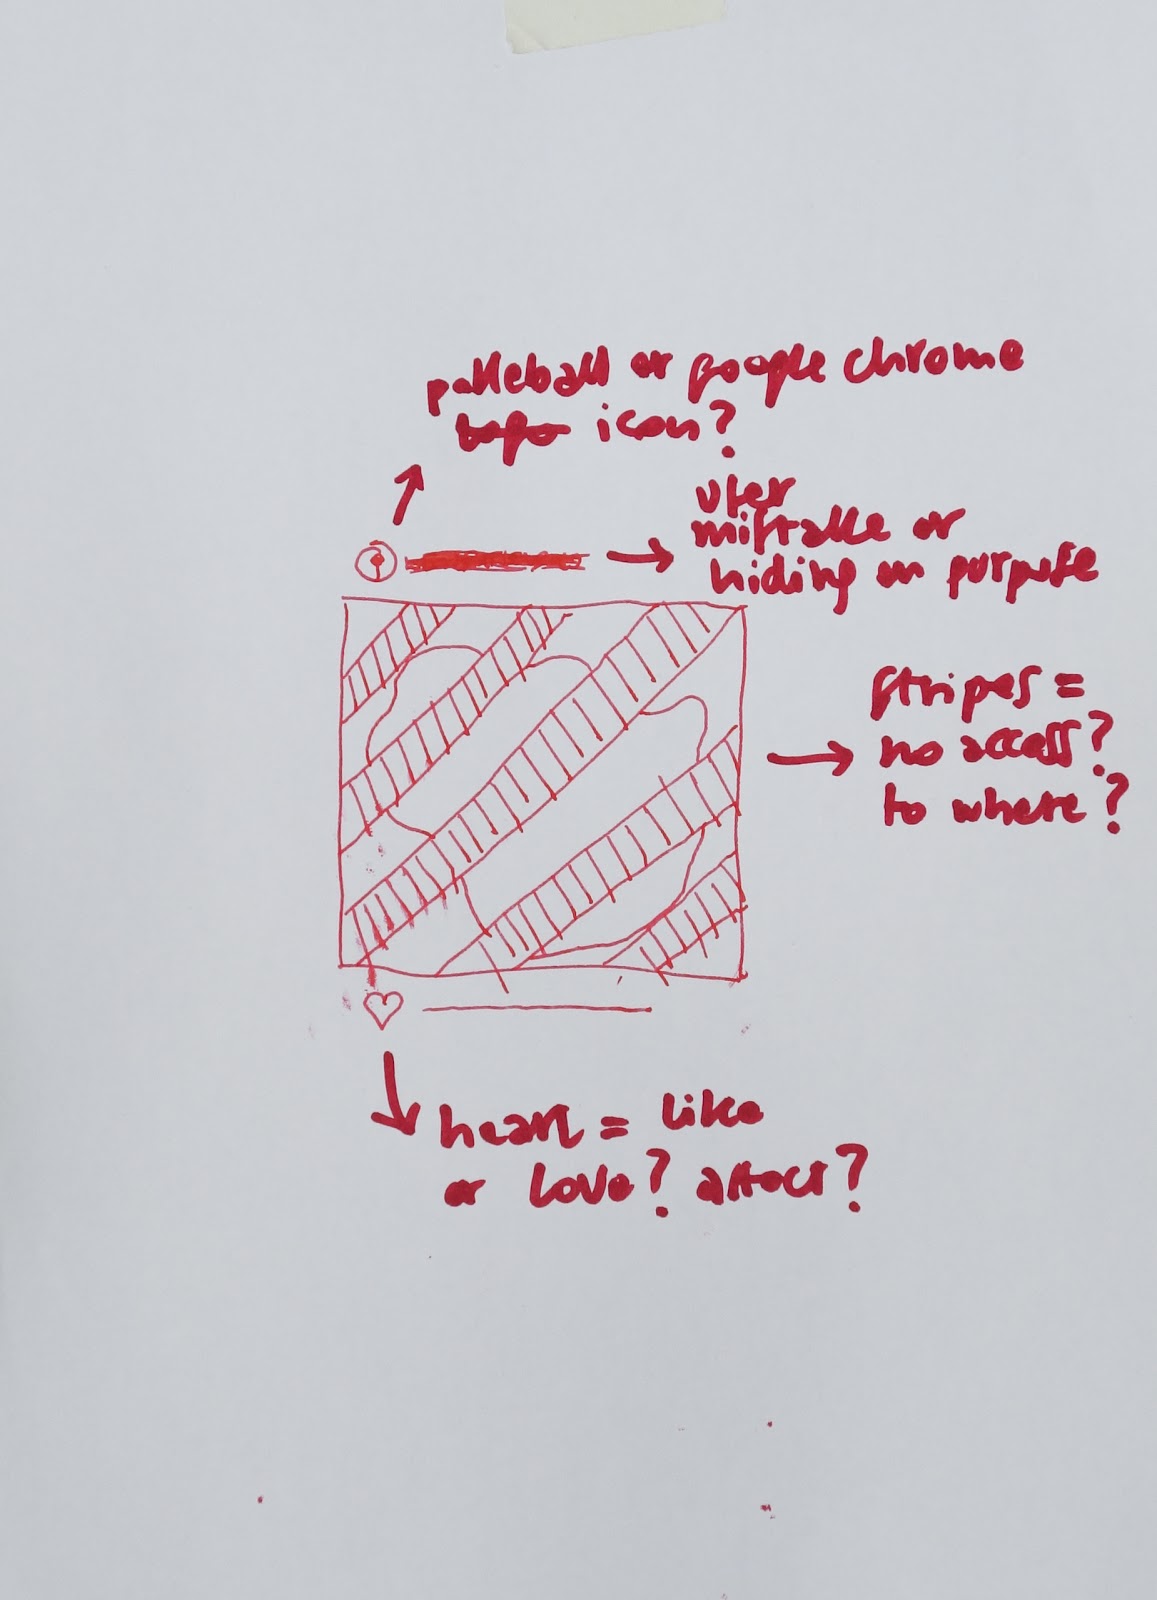 pokeball or google chrome
icon?
user
mistake or
hiding on purpose
stripes =
no access?
to where?
heart = like
or love? affect?